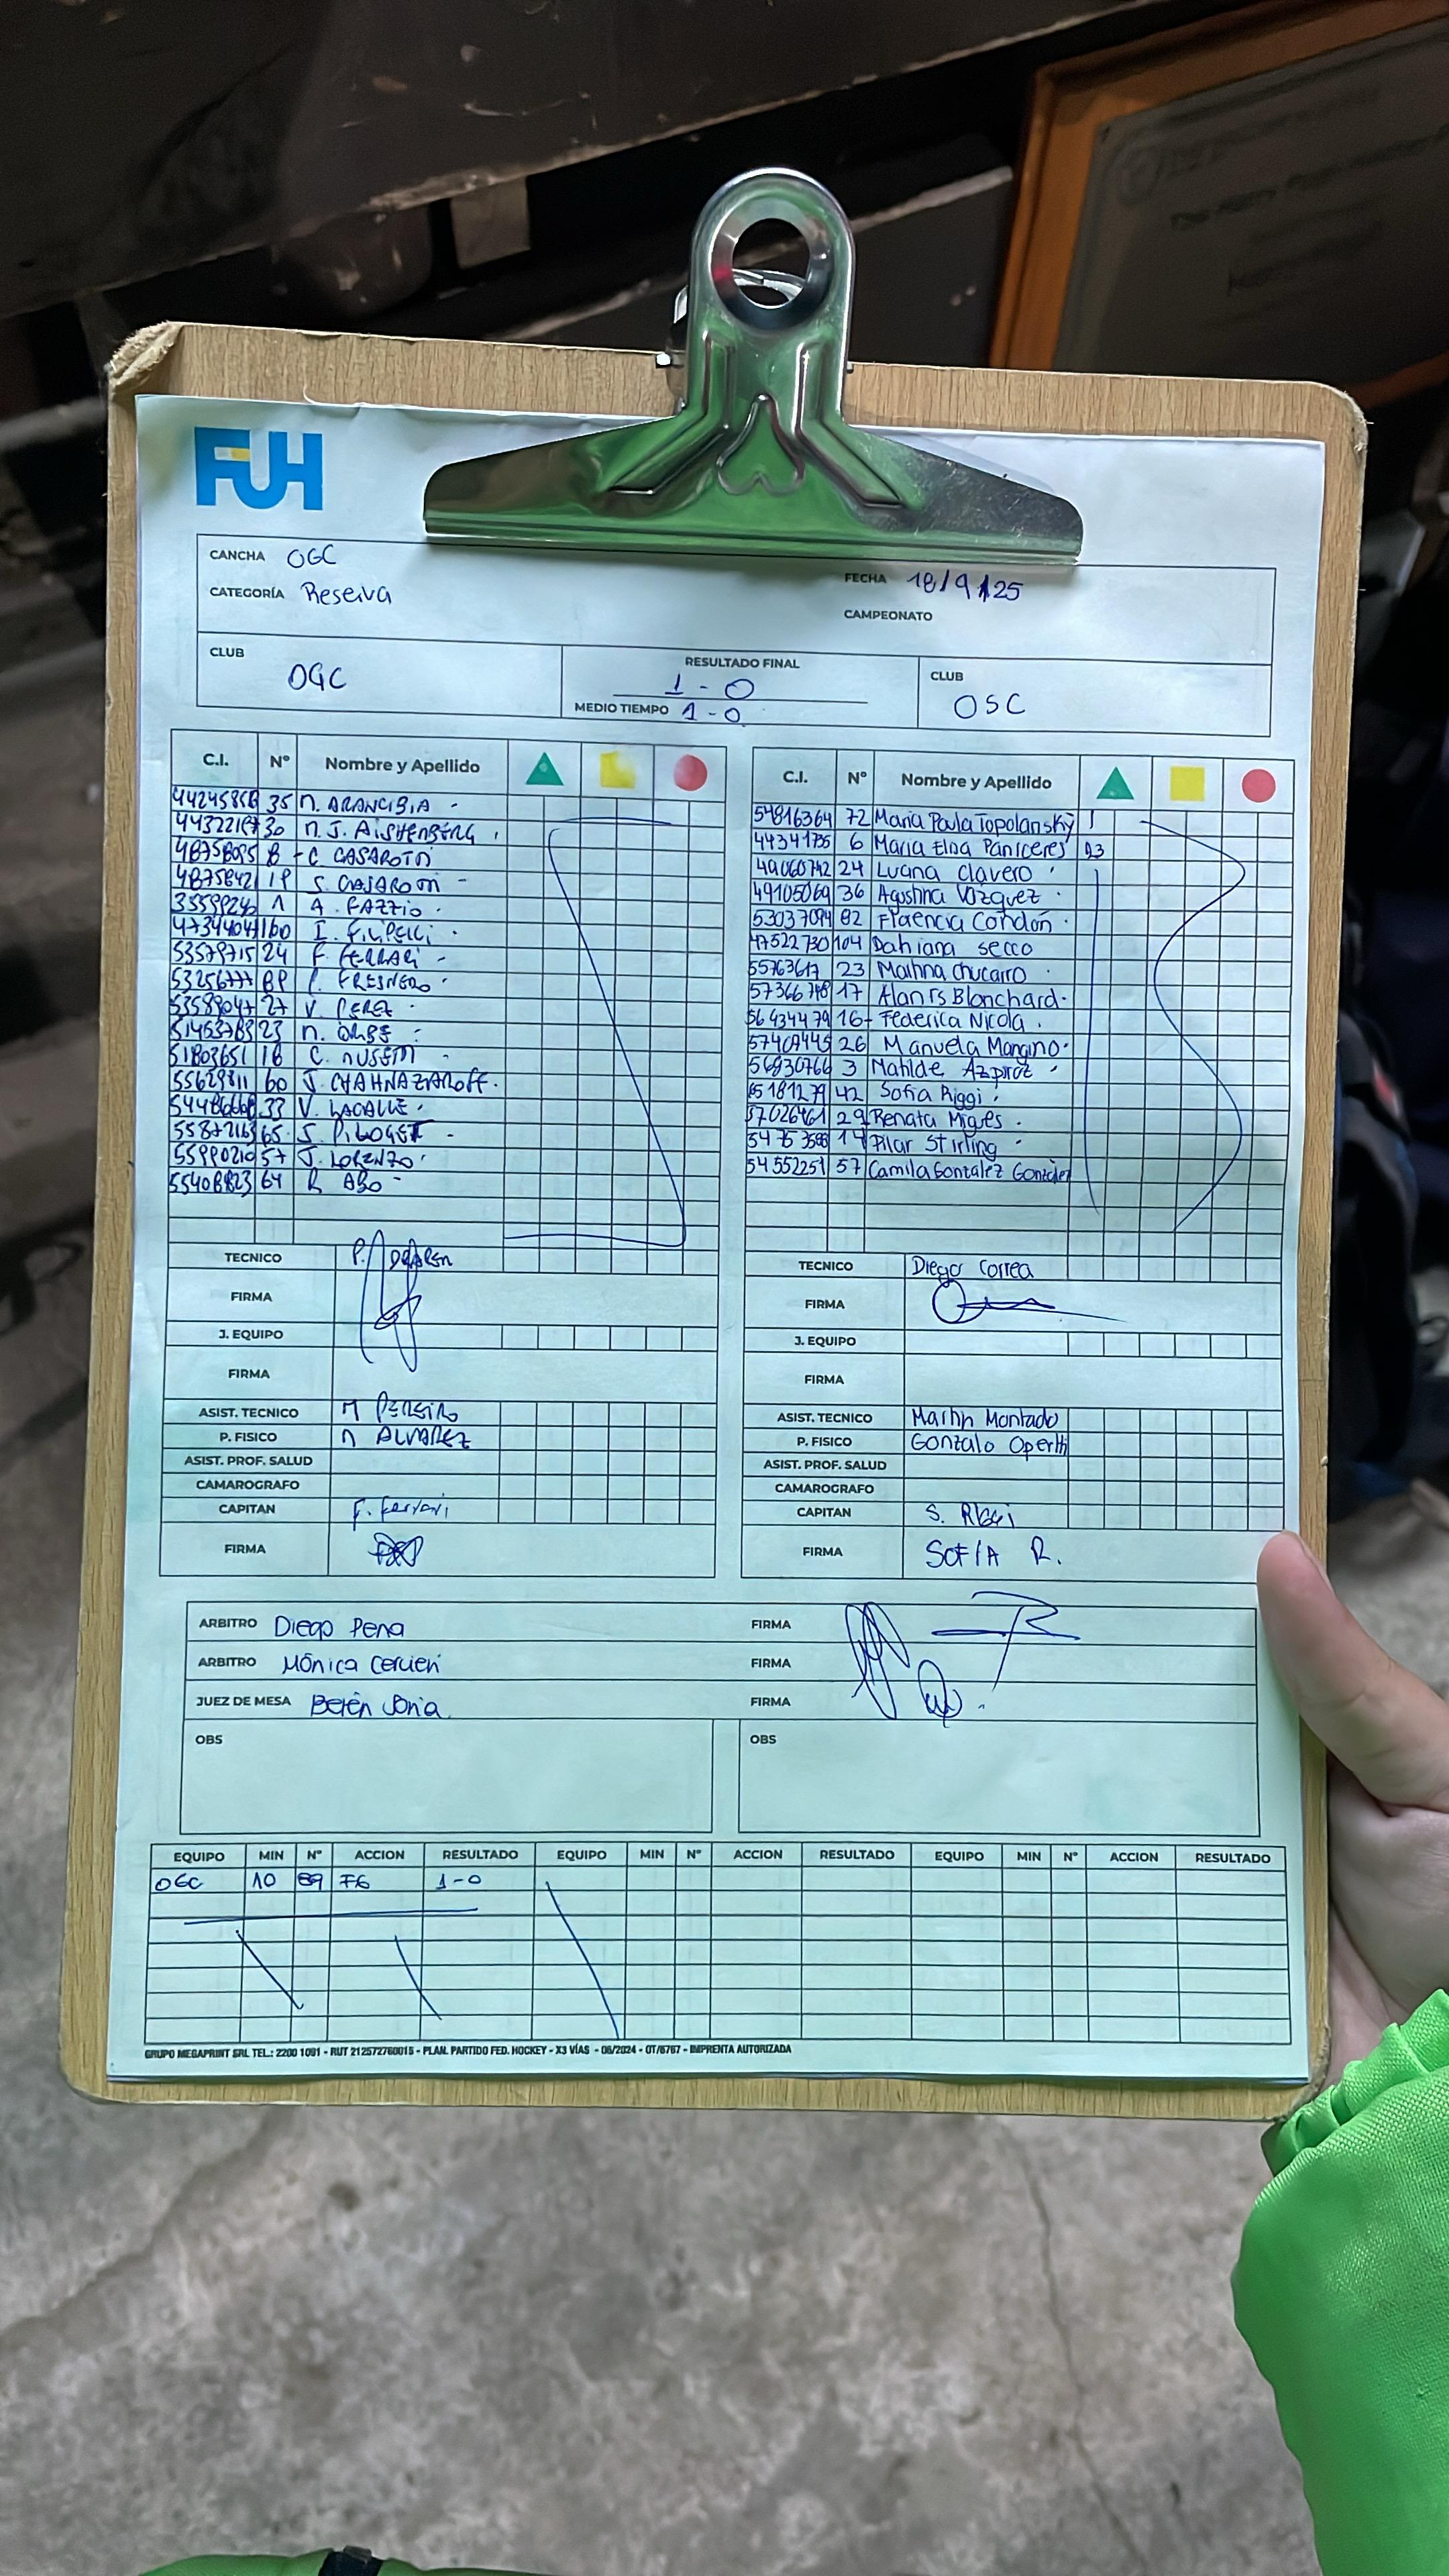 FUH
CANCHA OGC
FECHA 18/9/25
CATEGORÍA Reserva
CAMPEONATO
CLUB OGC
RESULTADO FINAL 1-0
MEDIO TIEMPO 1-0
CLUB OSC
C.I. Nº Nombre y Apellido
35 N. ARANCIBIA
30 N. J. AISHENBERG
8 C CASAROTTI
S. CASAROTTI
1 A. FAZZIO
160 I. FILIPELLI
53579715 24 F. FERRARI
FRESNERO
27 V. PEREZ
23 N. ORBE
51803651 16 C. NUSEM
55629811 60 J. CHAHNAZIAROFF
33 V. LACALLE
65 S.
57 J. LORENZO
64 R ABO
TECNICO P.
FIRMA
J. EQUIPO
FIRMA
ASIST. TECNICO M PEREIRO
P. FISICO N ALVAREZ
ASIST. PROF. SALUD
CAMAROGRAFO
CAPITAN F. Ferrari
FIRMA
C.I. Nº Nombre y Apellido
54816364 72 Maria Paula Topolansky
44341735 6 Maria Elna Paniceres 23
49060742 24 Luana Clavero
49105069 36 Agustina Vázquez
53037094 82 Florencia Cordon
47522730 104 Dahiana secco
55763617 23 Martina chucarro
57366748 17 Alanis Blanchard
56434479 16 Federica Nicola
57409445 26 Manuela Mangino
56930766 3 Matilde Azpiroz
42 Sofia Riggi
57026461 29 Renata Migues
14 Pilar Stirling
54552251 57 Camila Gonzalez Gonzalez
TECNICO Diego Correa
FIRMA
J. EQUIPO
FIRMA
ASIST. TECNICO Martin Montado
P. FISICO Gonzalo Operti
ASIST. PROF. SALUD
CAMAROGRAFO
CAPITAN S. RIGGI
FIRMA SOFIA R.
ARBITRO Diego Pena FIRMA
ARBITRO Mónica Cervieri FIRMA
JUEZ DE MESA Belén Soria FIRMA
OBS OBS
EQUIPO MIN Nº ACCION RESULTADO EQUIPO MIN Nº ACCION RESULTADO EQUIPO MIN Nº ACCION RESULTADO
OGC 10 89 FG 1-0
GRUPO MEGAPRINT SRL TEL.: 2200 1091 - RUT 212572760015 - PLAN. PARTIDO FED. HOCKEY - X3 VÍAS - 06/2024 - OT/6767 - IMPRENTA AUTORIZADA